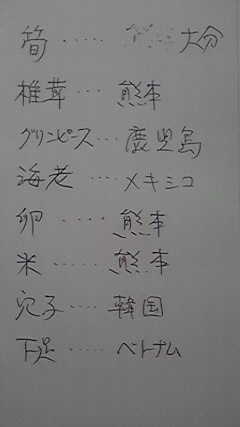 筍‥‥‥大分
椎茸‥‥熊本
グリンピース‥‥鹿児島
海老‥‥‥メキシコ
卵‥‥‥熊本
米‥‥‥熊本
穴子‥‥韓国
下足‥‥‥ベトナム